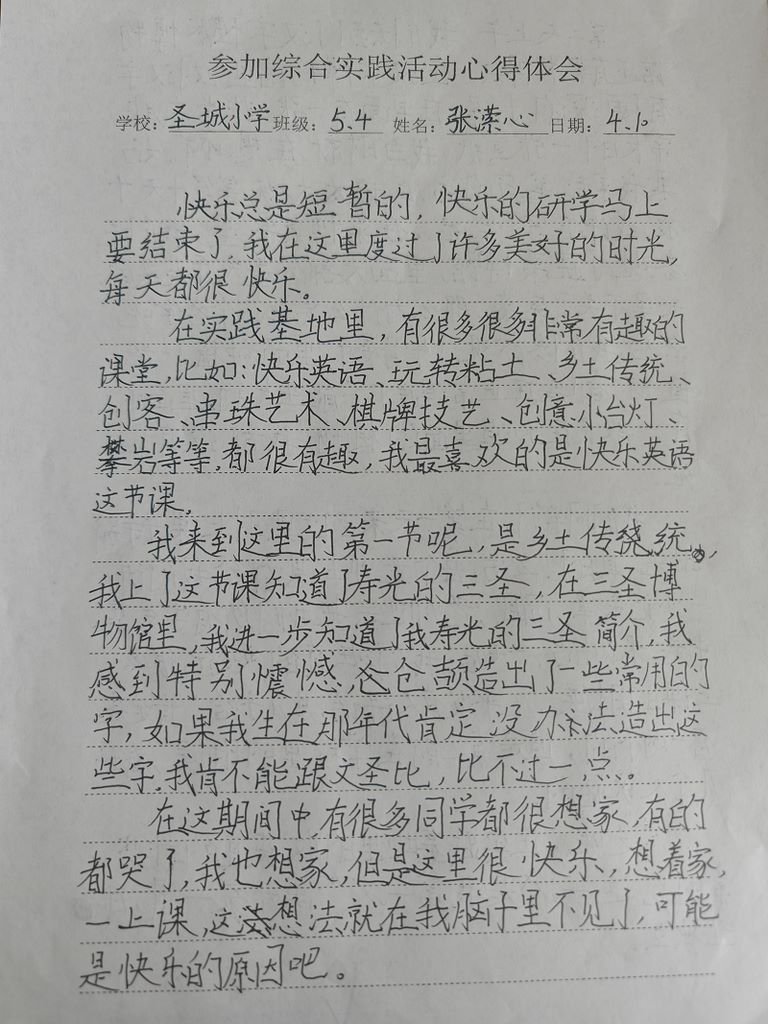 参加综合实践活动心得体会
学校：圣城小学 班级：5.4 姓名：张潆心 日期：4.10
快乐总是短暂的，快乐的研学马上
要结束了，我在这里度过了许多美好的时光，
每天都很快乐。
在实践基地里，有很多很多非常有趣的
课堂，比如：快乐英语、玩转粘土、乡土传统、
创客、串珠艺术、棋牌技艺、创意小台灯、
攀岩等等，都很有趣，我最喜欢的是快乐英语
这节课。
我来到这里的第一节呢，是乡土传统。，
我上了这节课知道了寿光的三圣，在三圣博
物馆里，我进一步知道了我寿光的三圣简介，我
感到特别憾，仓颉造出了一些常用的
字，如果我生在那年代肯定没办法造出这
些字，我肯不能跟文圣比，比不过一点。
在这期间中，有很多同学都很想家，有的
都哭了，我也想家，但是这里很快乐，想着家，
一上课，这想法就在我脑子里不见了，可能
是快乐的原因吧。